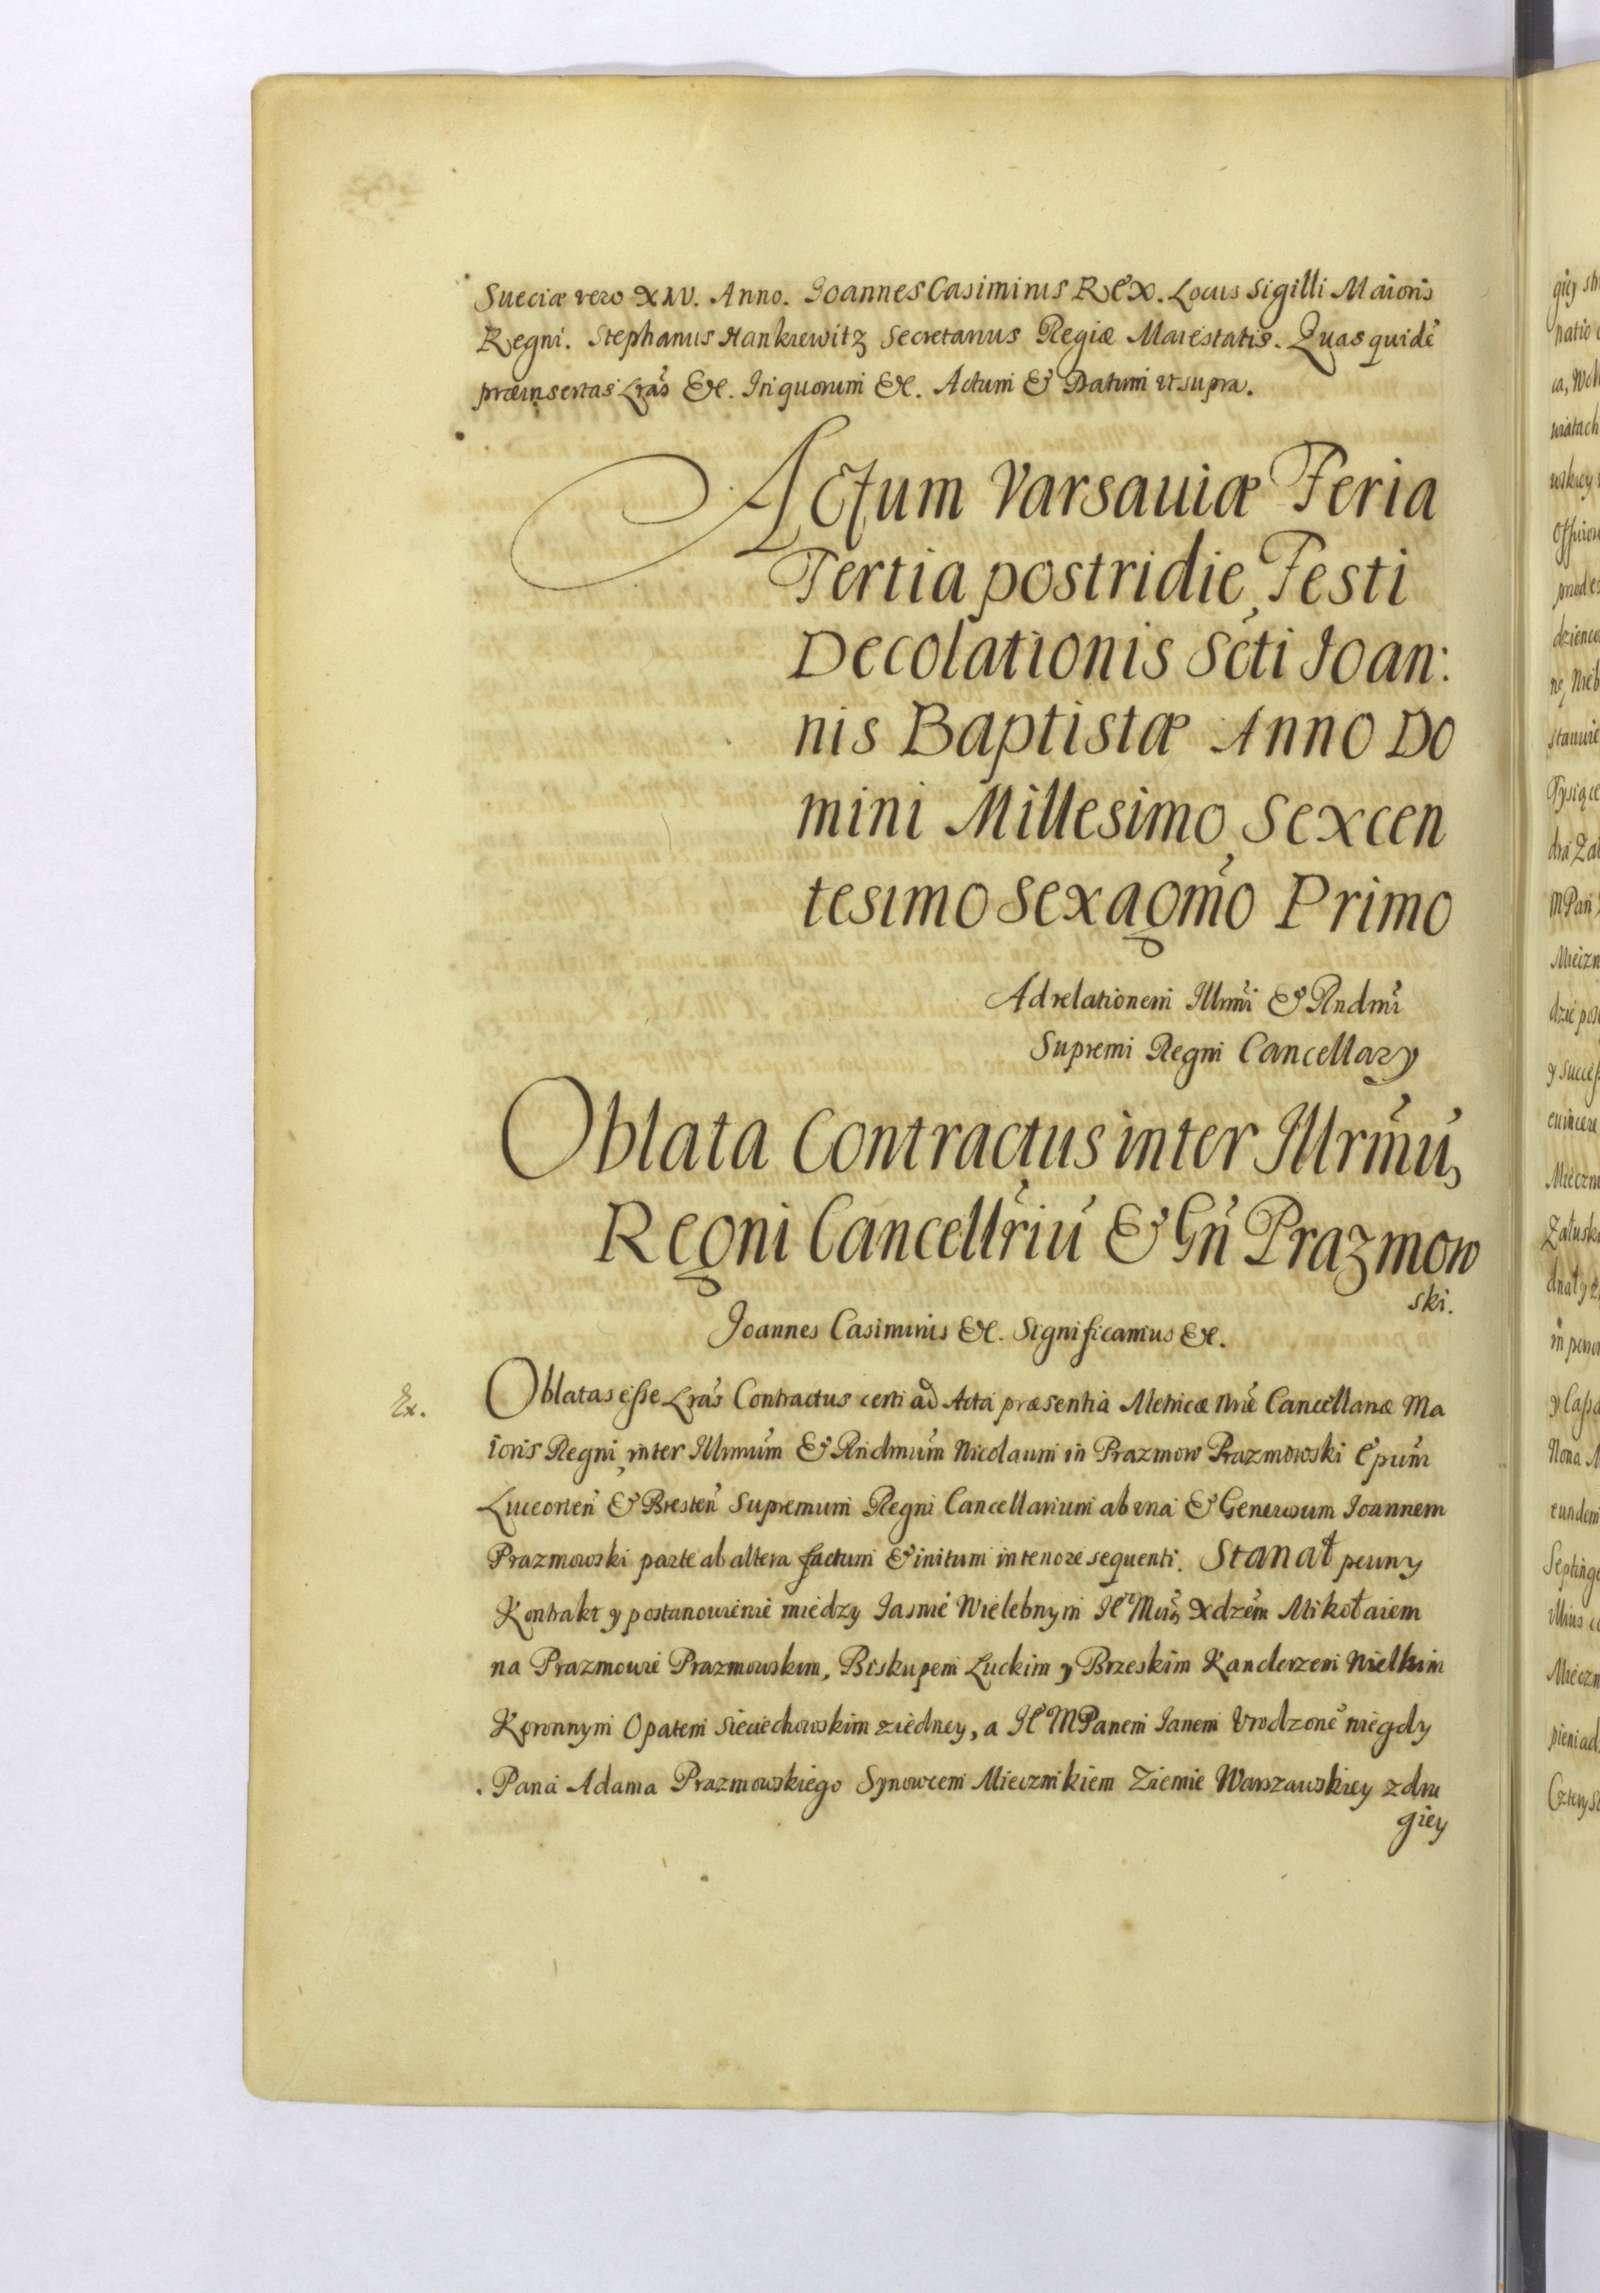 Sueciæ vero XIV. Anno. Joannes Casimirus REX. Locus Sigilli Maioris
Regni. Stephanus Hankiewitz Secretarius Regiæ Maiestatis. Quas quidẽ
præinsertas Lrãs &c. In quorum &c. Actum & Datum ut supra.
Actum Varsauiæ Feria
Tertia postridie Festi
Decolationis Scti Joan:
nis Baptistæ Anno Do
mini Millesimo Sexcen
tesimo Sexagmo Primo
Ad relationem Illrmi & Rndmi
Supremi Regni Cancellary
Oblata Contractus inter Illrmũ,
Regni Cancellriũ & Gñ Prazmow
ski.
Joannes Casimirus &c. Significamus &c.
Ex.
Oblatas esse Lrãs Contractus certi ad Acta præsentia Metricæ Nræ Cancellariæ Ma
ioris Regni inter Illrmum & Rndmum Nicolaum in Prazmow Prazmowski Epum
Luceorien̄ & Bresten̄ Supremum Regni Cancellarium ab una & Generosum Joannem
Prazmowski parte ab altera factum & initum in tenore sequenti. Stanął pewny
Kontrakt y postanowienie miedzy Jasnie Wielebnym JE Mcią Xdzem Mikołaiem
na Prazmowie Prazmowskim, Biskupem Łuckim y Brzeskim Kanclerzem Wielkim
Koronnym Opatem Sieciechowskim ziedney, a JE M Panem Janem Vrodzone niegdy
Pana Adama Prazmowskiego Synowcem Miecznikiem Ziemie Warszawskiey z dru
giey